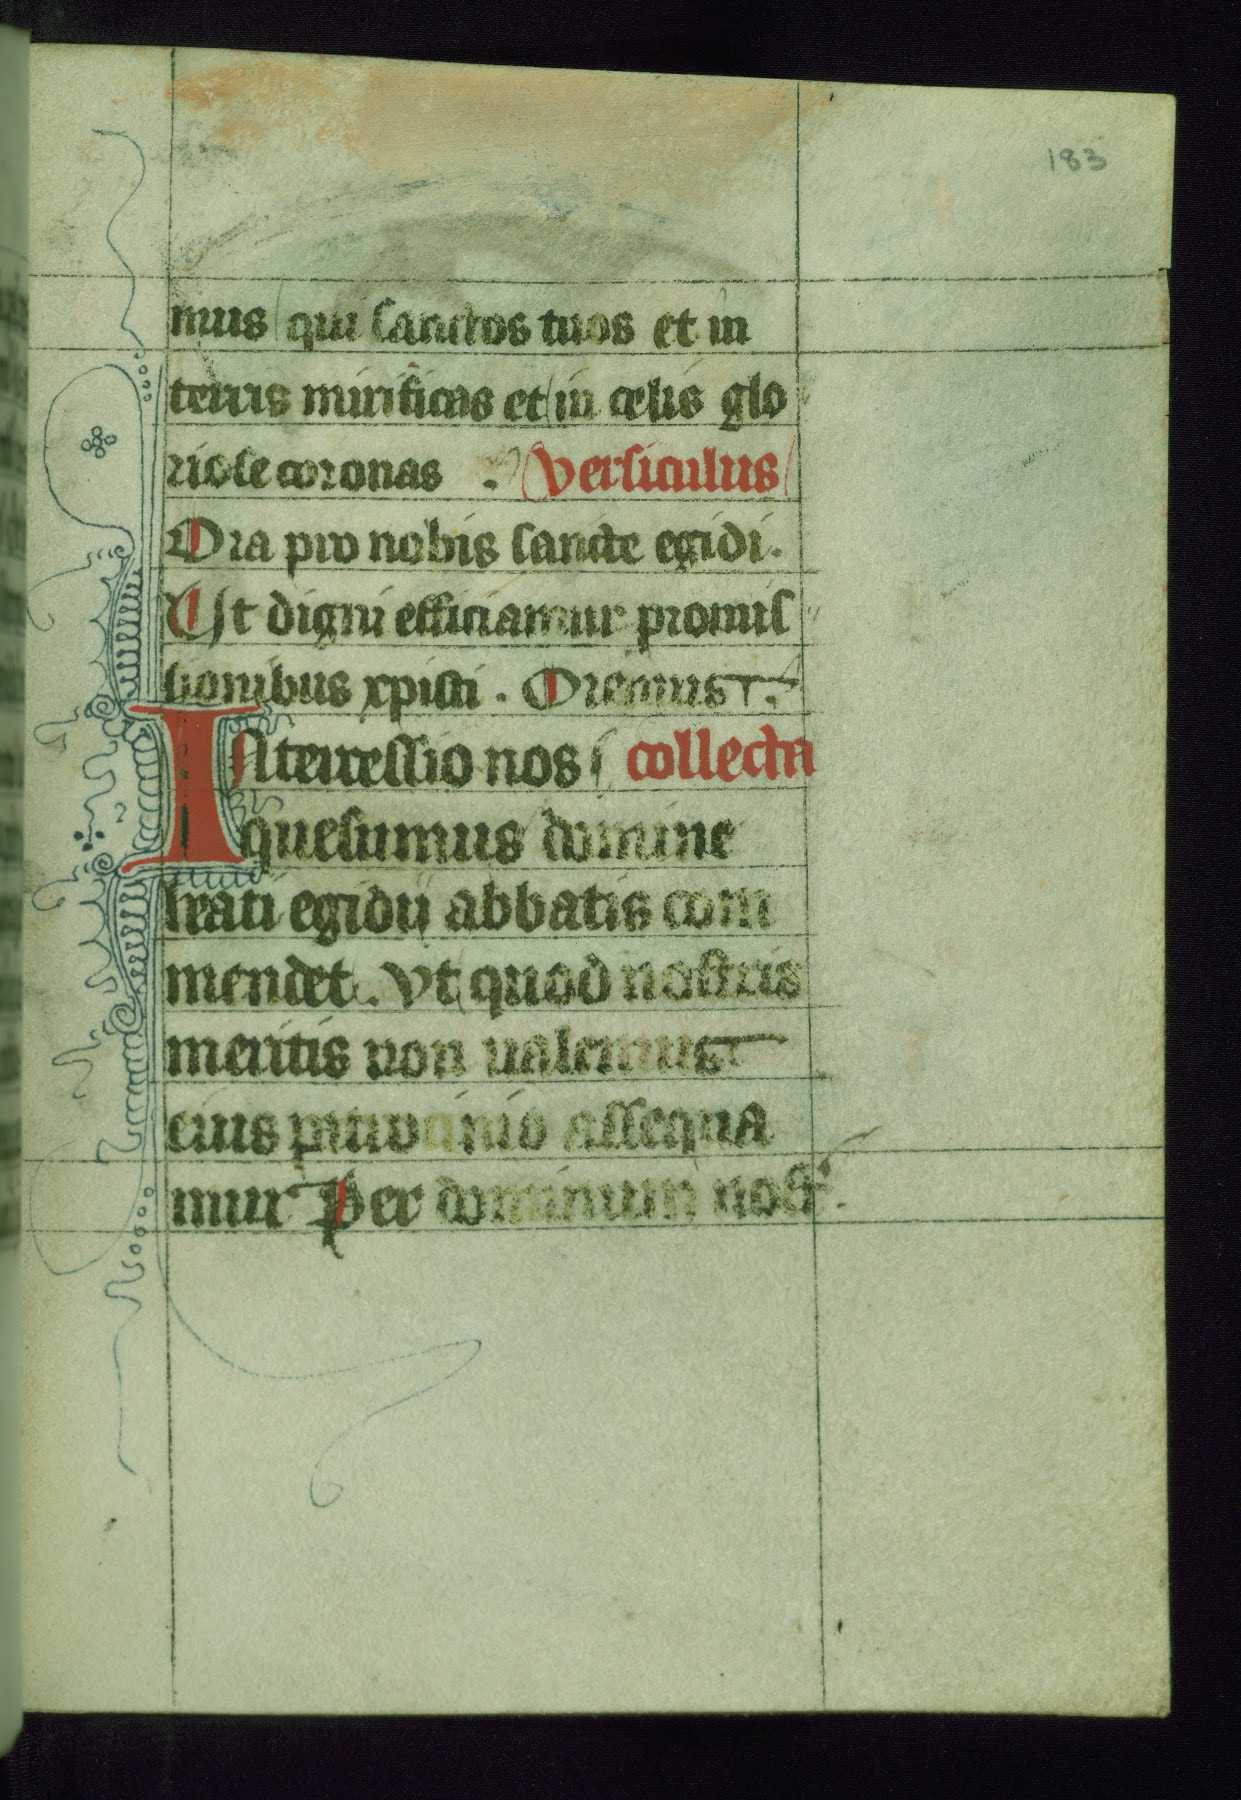 183
mus qui sanctos tuos et in
terris mirificas et in celis glo
riose coronas . Versiculus
Ora pro nobis sancte egidi.
Ut digni efficiamur promis
sionibus xpisti . Oremus.
Intercessio nos collecta
quesumus domine
beati egidii abbatis com
mendet. Vt quod nostris
meritis non ualemus
eius patrocinio assequa
mur Per dominum nost̄.